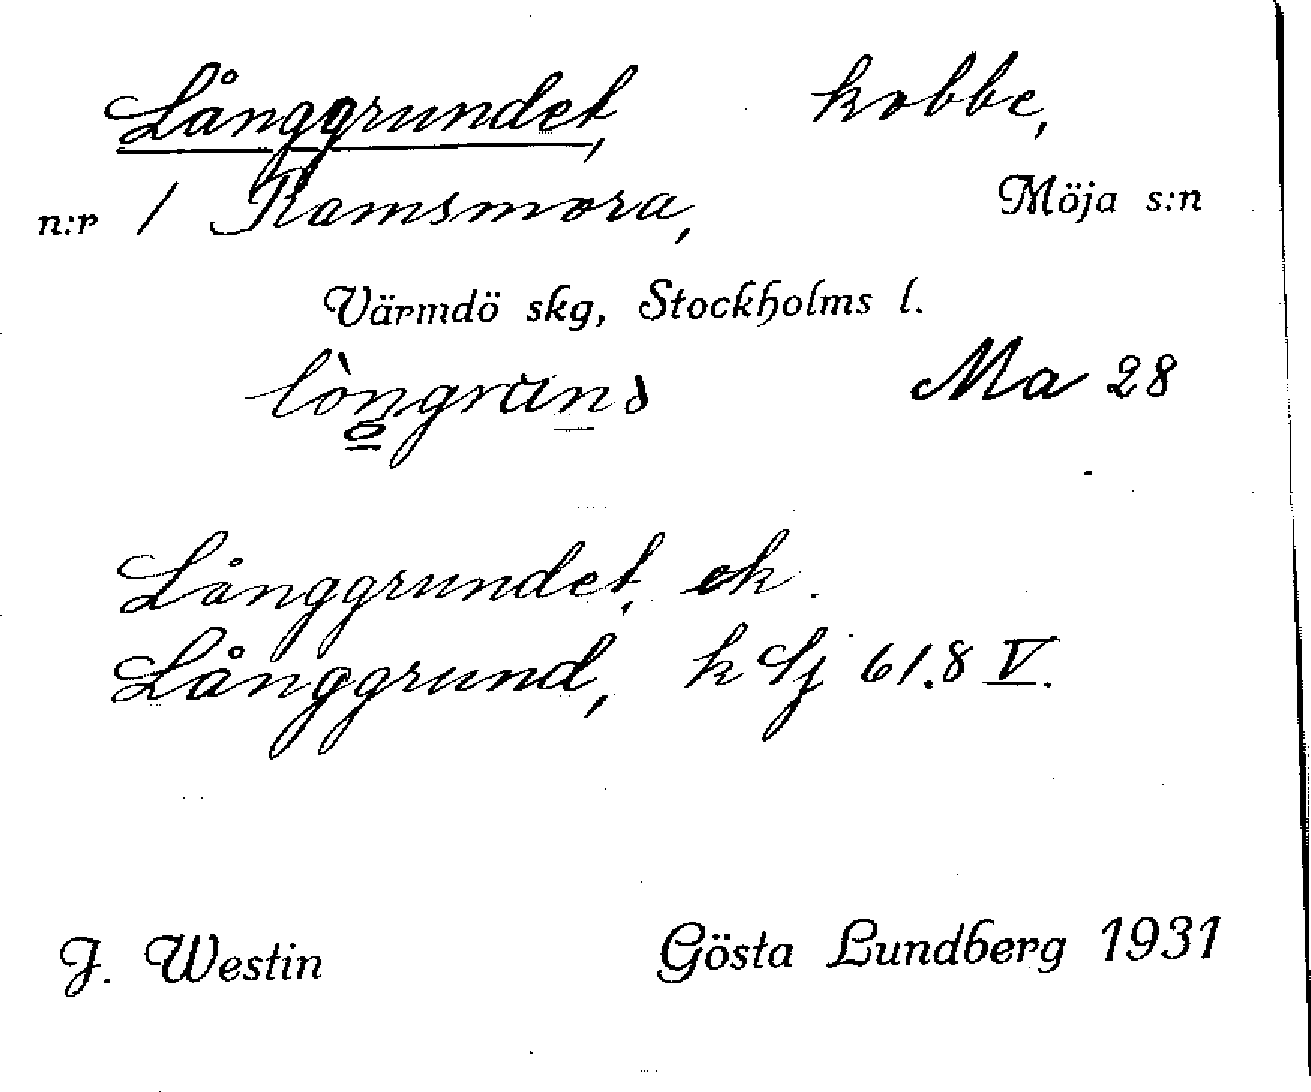 Långgrundet, kobbe,
n:r 1 Ramsmora, Möja s:n
Värmdö skg, Stockholms l.
Ma 28
Långgrundet, ek.
Långgrund, k Sj 61.8 V.
J. Westin Gösta Lundberg 1931